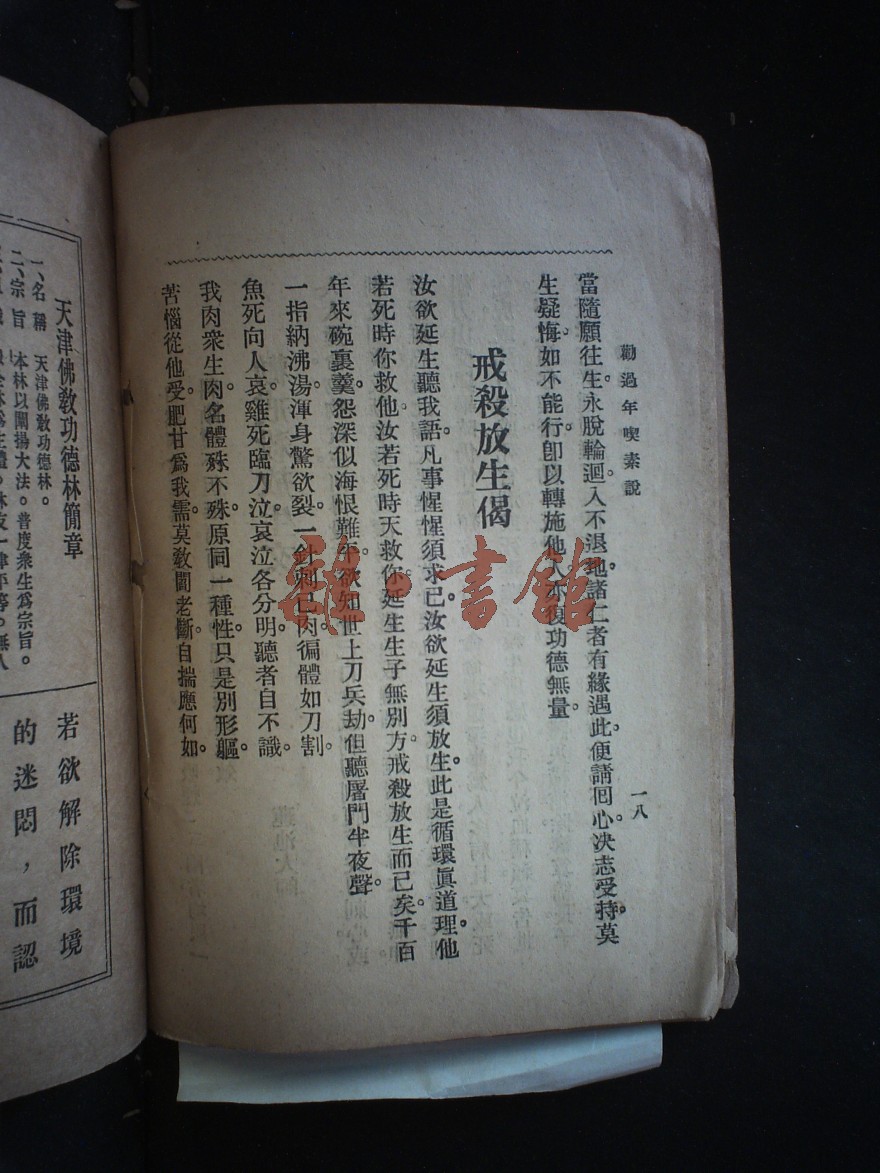 勸過年喫素說
一八
當隨願往生。永脫輪迴。入不退地。諸仁者有緣遇此。便請囘心。決志受持。莫
生疑悔。如不能行。卽以轉施他人。亦復功德無量。
戒殺放生偈
汝欲延生聽我語。凡事惺惺須求己。汝欲延生須放生。此是循環眞道理。他
若死時你救他。汝若死時天救你。延生生子無別方。戒殺放生而已矣。千百
年來碗裏羹。怨深似海恨難平。欲知世上刀兵劫。但聽屠門半夜聲。
一指納沸湯。渾身驚欲裂。一針刺己肉。徧體如刀割。
魚死向人哀。雞死臨刀泣。哀泣各分明。聽者自不識。
我肉衆生肉。名體殊不殊。原同一種性。只是別形軀。
苦惱從他受。肥甘爲我需。莫敎閻老斷。自揣應何如。
天津佛敎功德林簡章
一、名稱 天津佛敎功德林。
二、宗旨 本林以闡揚大法。普度衆生爲宗旨。
若欲解除環境
的迷悶，而認
雜·書館